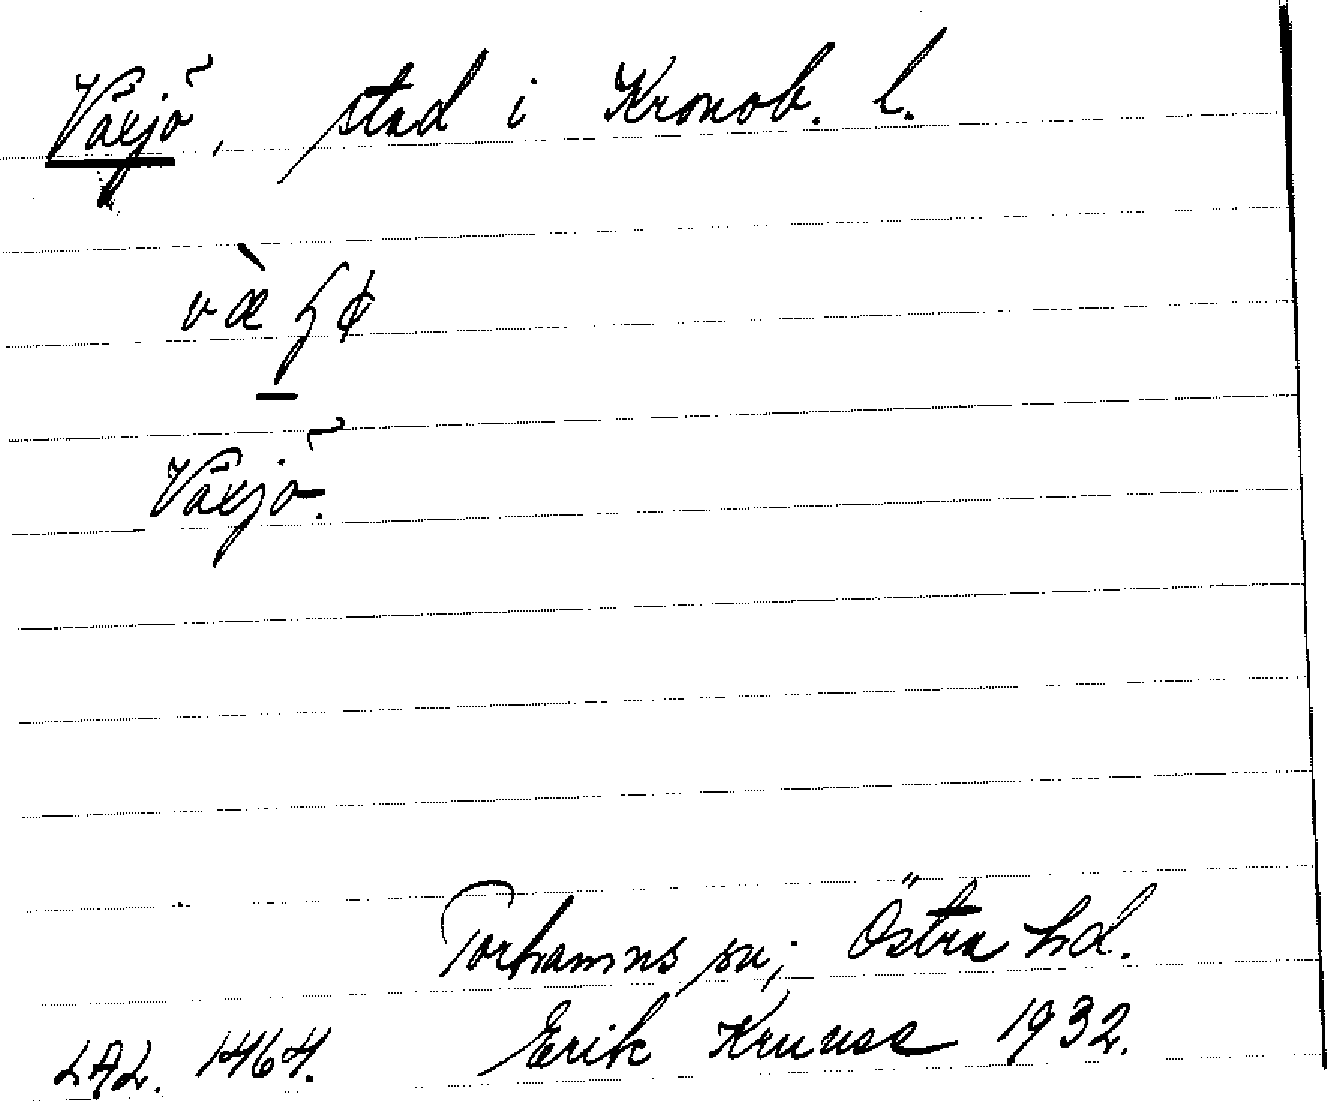 Växjö, stad i Kronob. l.
Växjö.
Torhamns sn; Östra hd.
LAL. 1464. Erik Kruuse 1932.